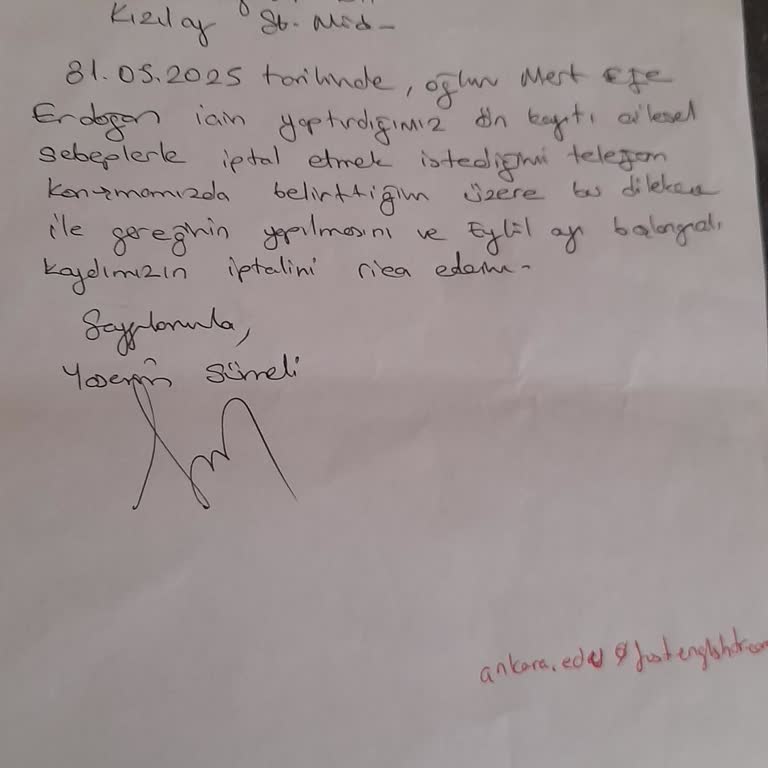 Kızılay Şb. Müd-
31.05.2025 tarihinde, oğlum Mert Efe
Erdoğan için yaptırdığımız ön kayıtı ailesel
sebeplerle iptal etmek istediğimi telefon
konuşmamızda belirttiğim üzere bu dilekçe
ile gereğinin yapılmasını ve Eylül ayı başlangıçlı
kaydımızın iptalini rica ederim.
Saygılarımla,
Yasemin Sürmeli
ankara.edu@justenglishtr.com